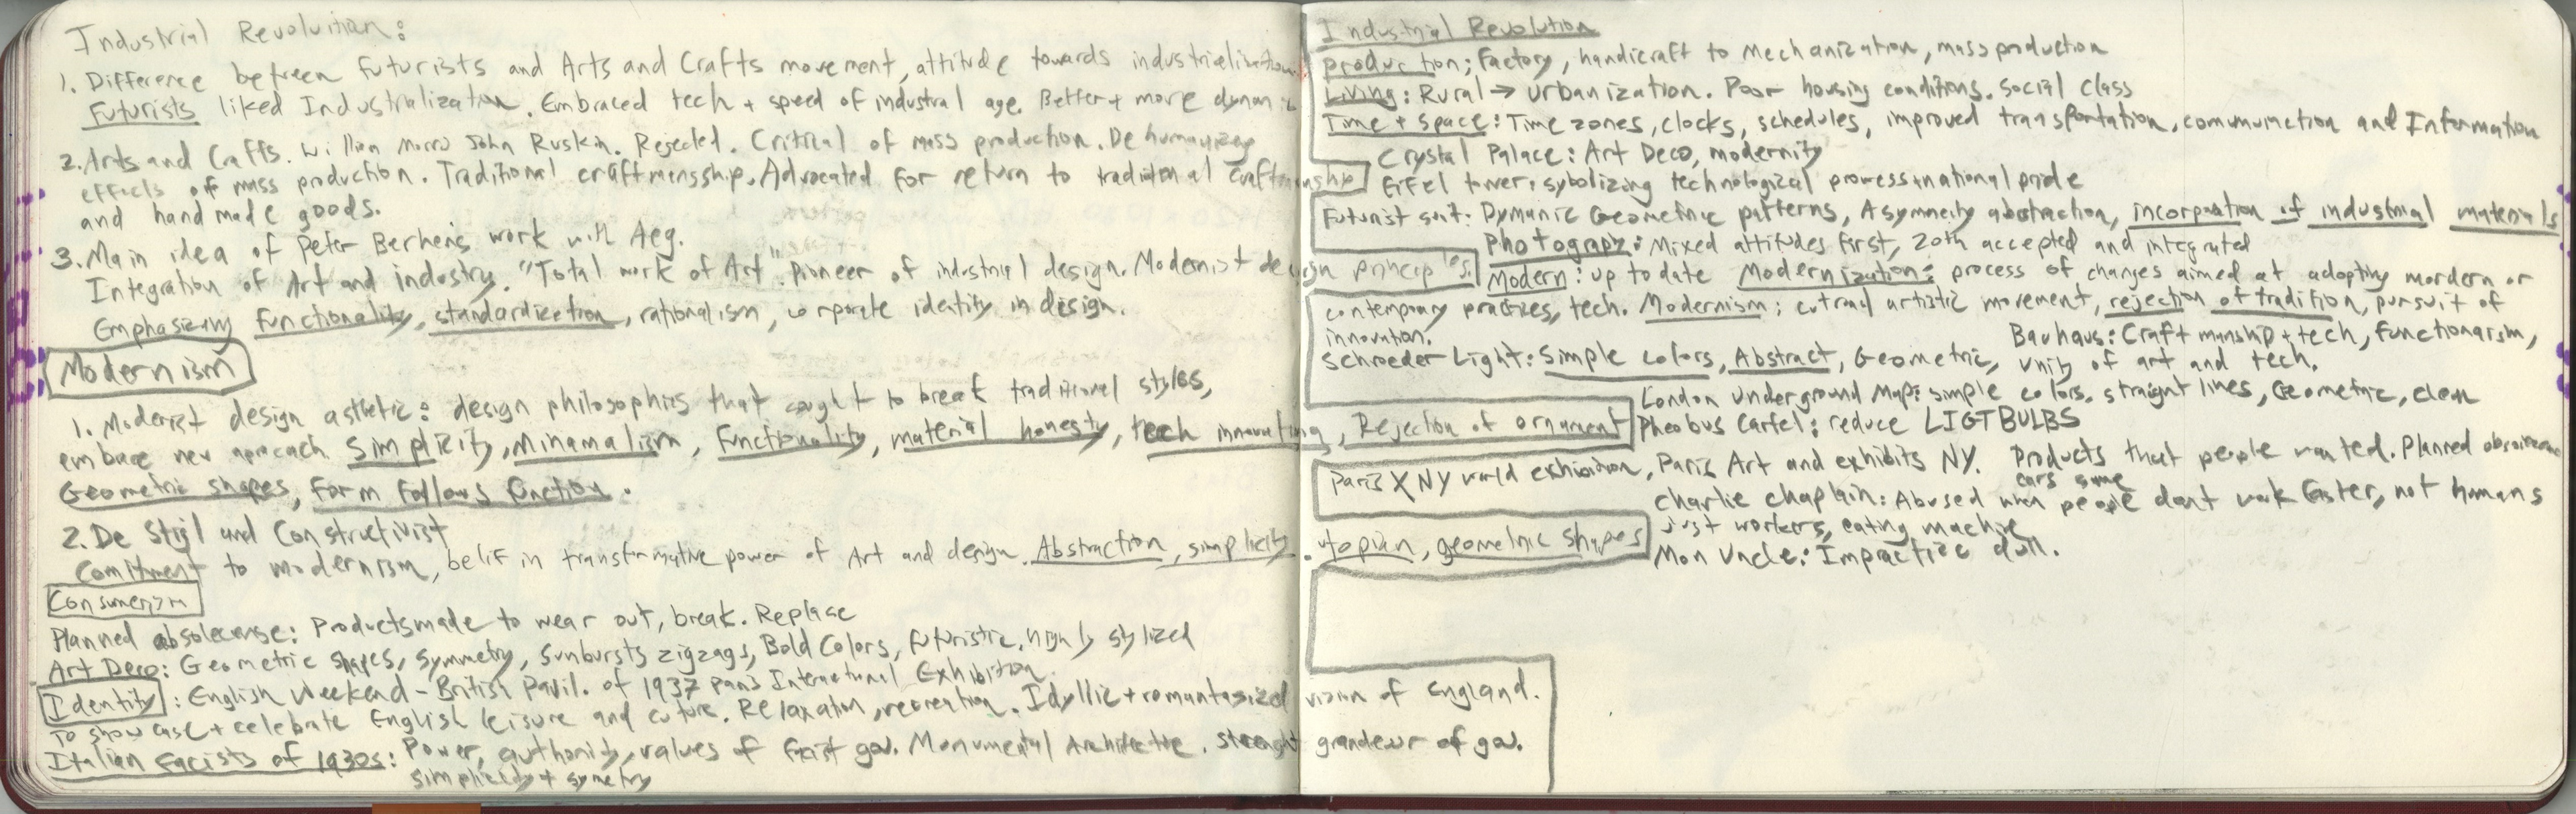 Industrial Revoluition:
1. Difference between futurists and Arts and Crafts movement, attitude towards industrialization.
Futurists liked Industrialization. Embraced tech + speed of industral age. Better + more dynamic
2. Arts and Crafts. William Morris John Ruskin. Rejected. Critical of mass production. Dehumanizing
effects of mass production. Traditional craftmensship. Advocated for return to traditional craftmanship
and handmade goods.
3. Main idea of Peter Berhens work with Aeg.
Integration of Art and industry. "Total work of Art". Pioneer of industrial design. Modernist design principles.
Emphasizing functionality, standardization, rationalism, corporate identity in design.
Modernism
1. Modernist design asthetic: design philosophies that sought to break traditional styles,
embrace new aproach. Simplicity, Minamalism, functionality, material honesty, tech innovating, Rejection of ornament
Geometric shapes, form follows function.
2. De Stijl and Constructivist
Comitment to modernism, belif in transformative power of Art and design. Abstraction, simplicity. utopian, geometric shapes
Consumerism
Planned absolecense: Products made to wear out, break. Replace
Art Deco: Geometric shapes, symmetry, Sunbursts zigzags, Bold Colors, futuristic, highly stylized
Identity: English Weekend - British Pavil. of 1937 Paris International Exhibition.
To showcase + celebrate English leisure and culture. Relaxation, recreation. Idyllic + romantasized vision of England.
Italian Facists of 1930s: Power, authority, values of facist gov. Monumental Architecture. strenght grandeur of gov.
simplicity + symetry
Industrial Revolution
production; Factory, handicraft to Mechanization, mass production
Living: Rural → urbanization. Poor housing conditions. Social Class
Time + Space: Time zones, clocks, schedules, improved transportation, communication and Information
Crystal Palace: Art Deco, modernity
Eifel tower: sybolizing technological process + national pride
Futurist suit: Dymanic Geometric patterns, Asymmeity abstraction, incorporation of industrial materials
Photograpy: Mixed attitudes first, 20th accepted and integrated
Modern: up to date Modernization: process of changes aimed at adopting mordern or
contemporary practices, tech. Modernism: cutural artistic movement, rejection of tradition, pursuit of
innovation.
Bauhaus: Craftmanship + tech, functionarism,
Schroeder Light: Simple colors, Abstract, Geometric, unity of art and tech.
London Underground Map: simple colors, straight lines, Geometric, clean
Pheobus Cartel: reduce LIGTBULBS
Paris X NY world exhibition, Paris Art and exhibits NY. Products that people wanted. Planned
cars some
Charlie Chaplain: Abused when people dont work faster, not humans
just workers, eating machine
Mon Uncle: Impractice dull.